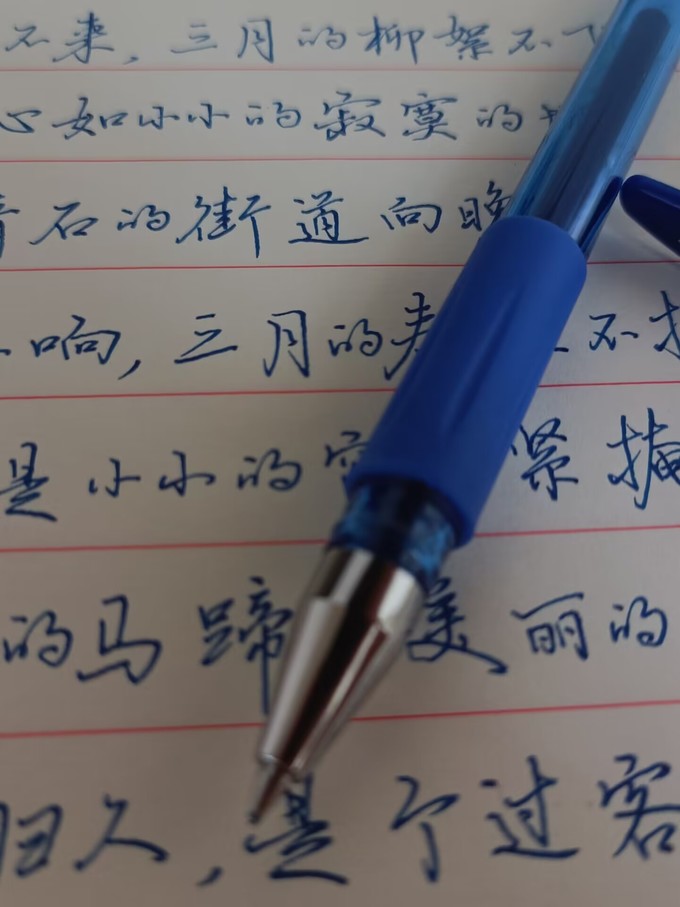 不来，三月的柳絮不飞
心如小小的寂寞的城
青石的街道向晚
不响，三月的春 不揭
是小小的窗 紧掩
的马蹄 美丽的
归人，是个过客